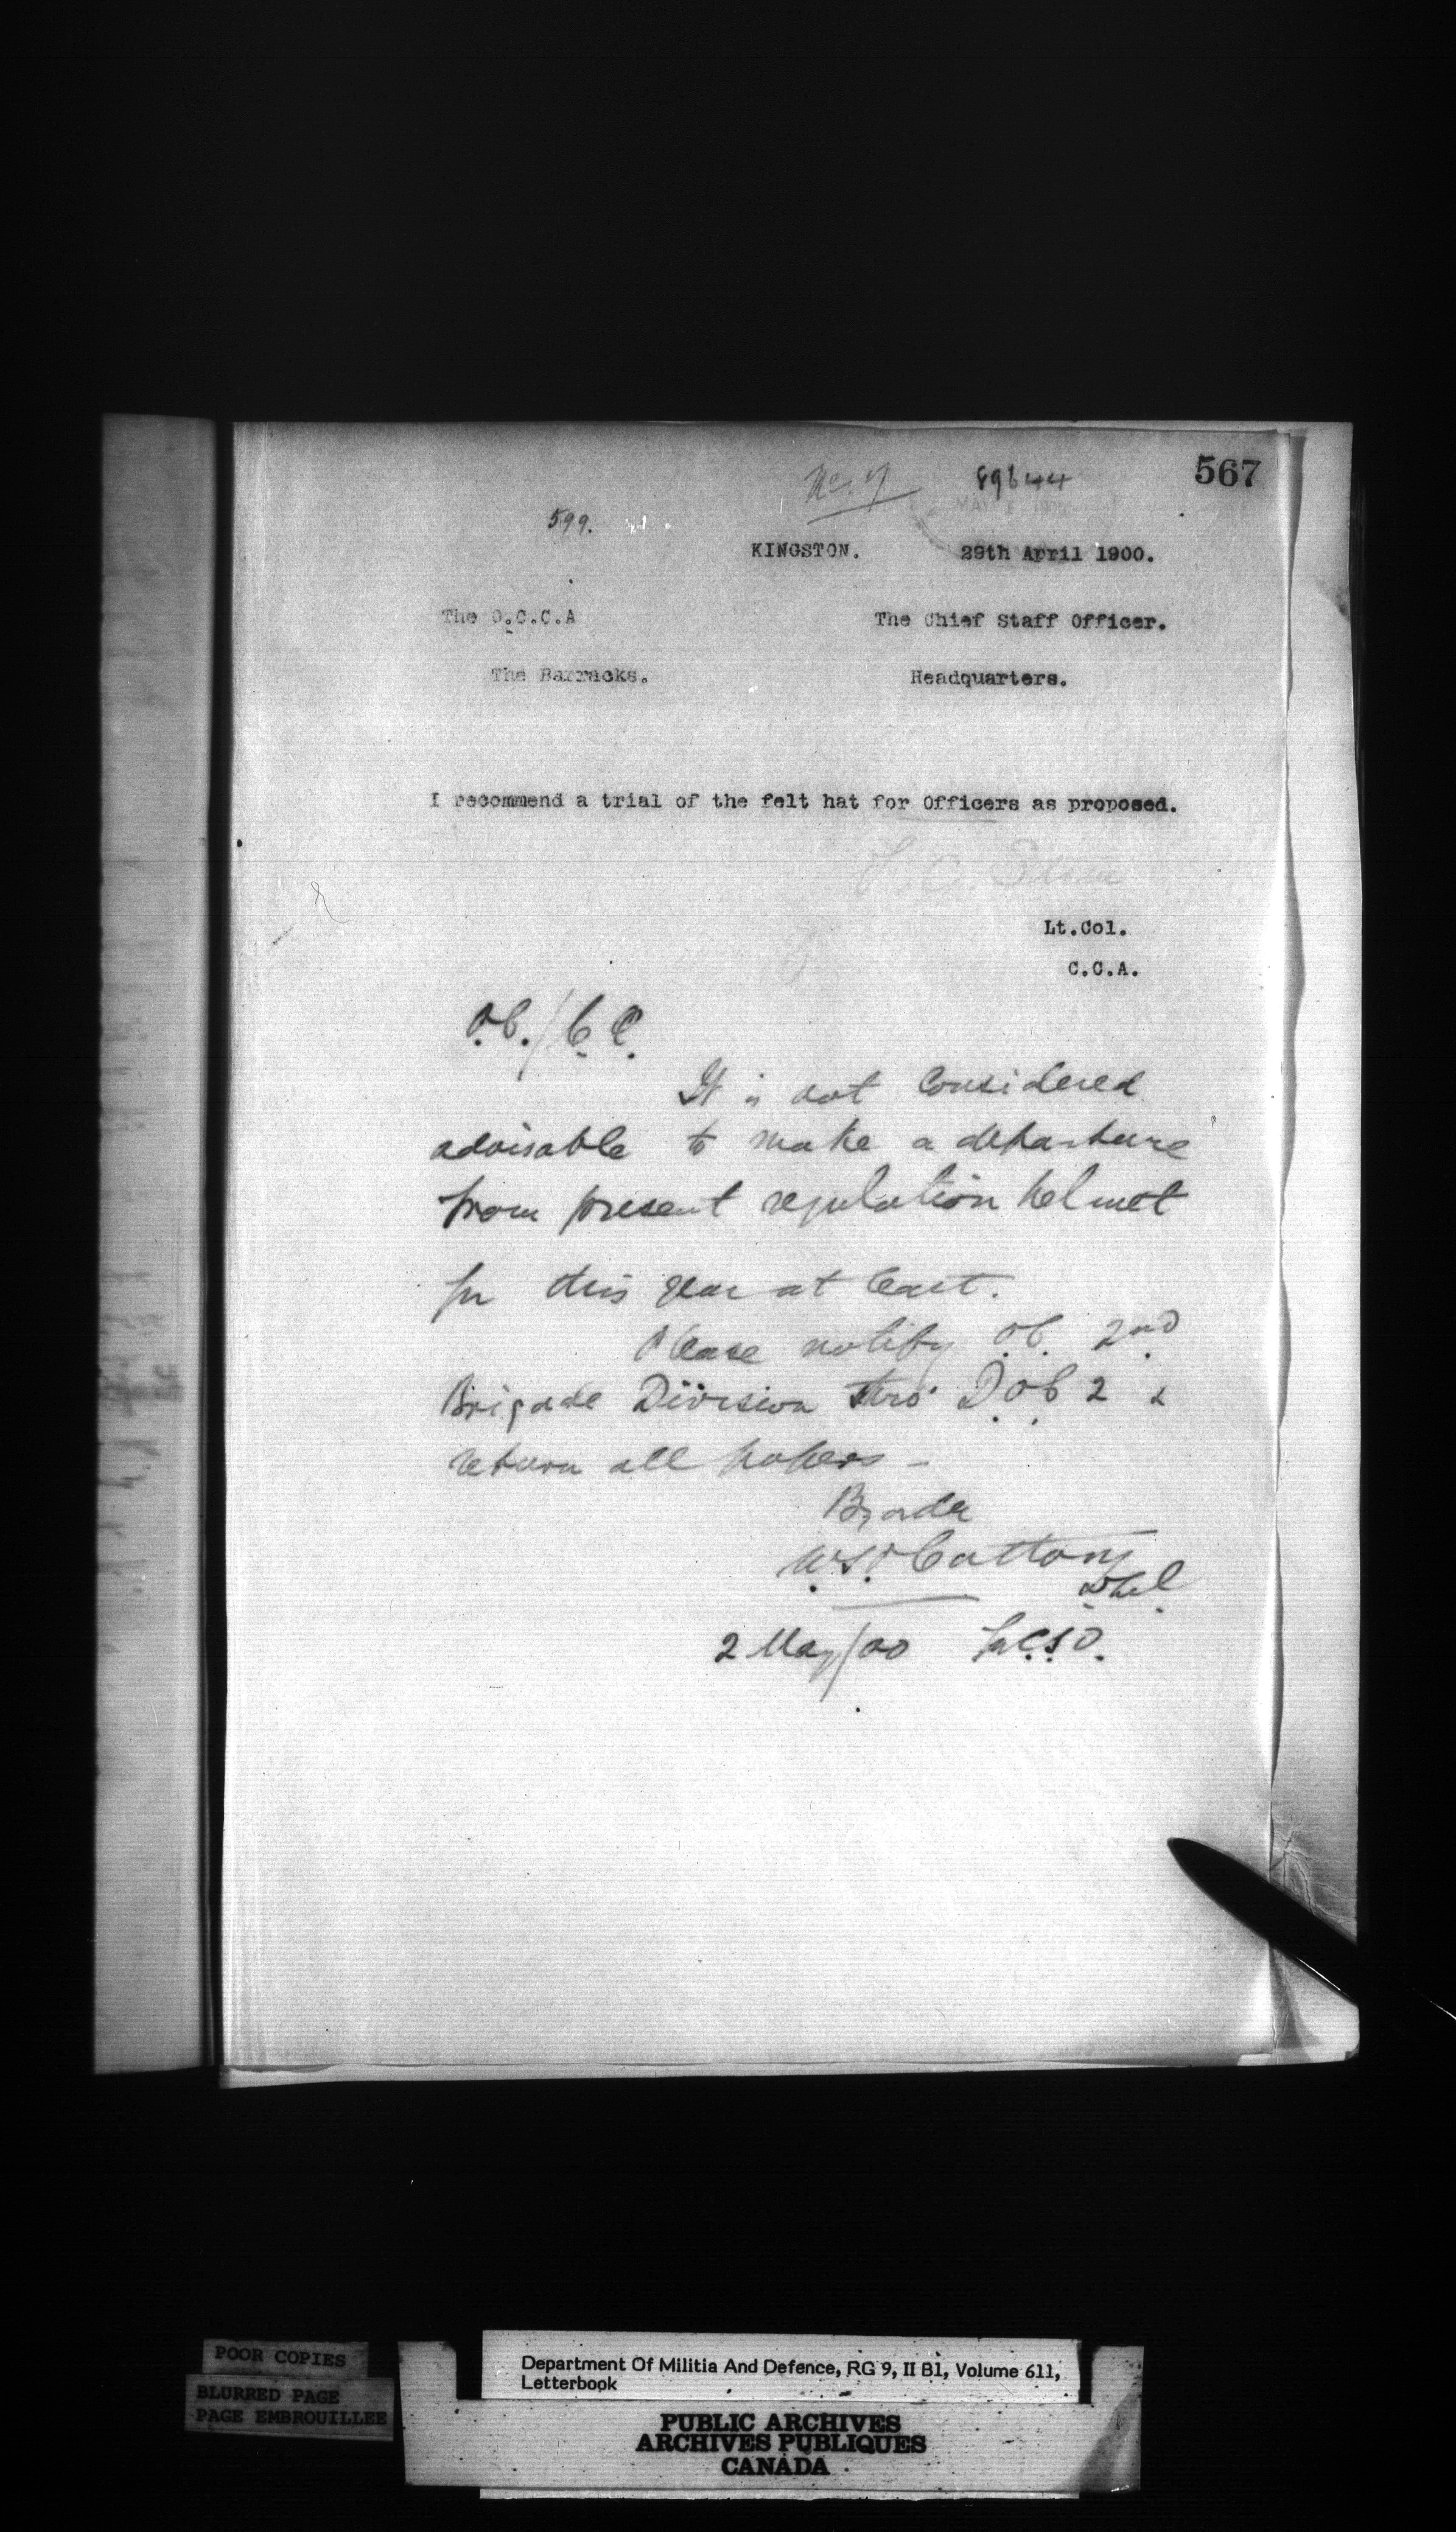 567
No. 7 89644
599.
KINGSTON. 29th April 1900.
The O.C.C.A The Chief Staff Officer.
The Barracks. Headquarters.
I recommend a trial of the felt hat for Officers as proposed.
Lt.Col.
C.C.A.
O.C./C.A.
It is not considered
advisable to make a departure
from present regulation helmet
for this year at least.
Please notify O.C. 2nd
Brigade Division thro' D.O.C 2 &
return all papers -
By order
2 May/00 for C.S.O.
POOR COPIES
BLURRED PAGE
PAGE EMBROUILLEE
Department Of Militia And Defence, RG 9, II B1, Volume 611,
Letterbook
PUBLIC ARCHIVES
ARCHIVES PUBLIQUES
CANADA